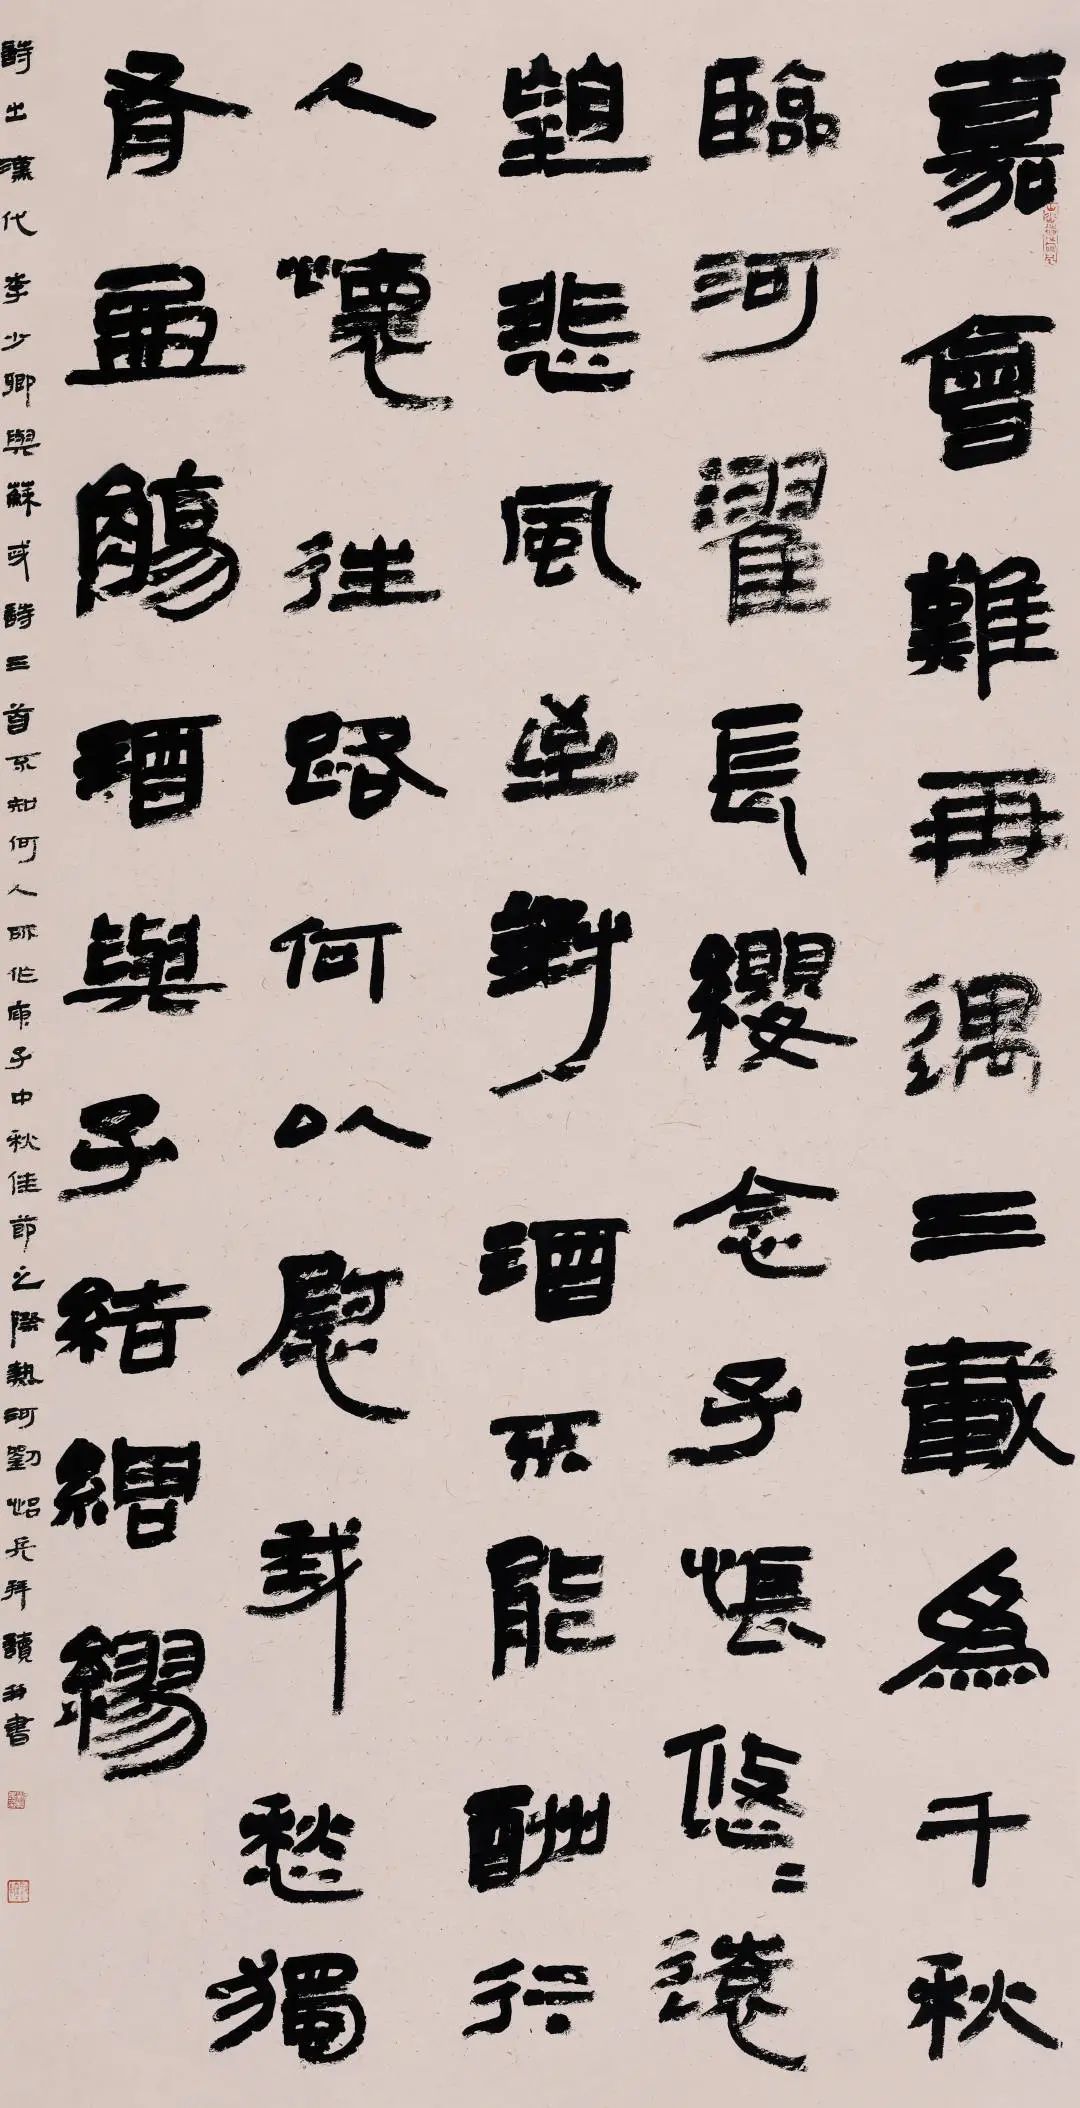 嘉會難再遇三載為千秋
臨河濯長纓念子悵悠〻遠
望悲風至對酒不能酬行
人懷往路何以慰我愁獨
有盈觴酒與子結綢繆
詩出漢代李少卿與蘇武詩三首不知何人所作庚子中秋佳節之際熱河劉兵拜讀并書